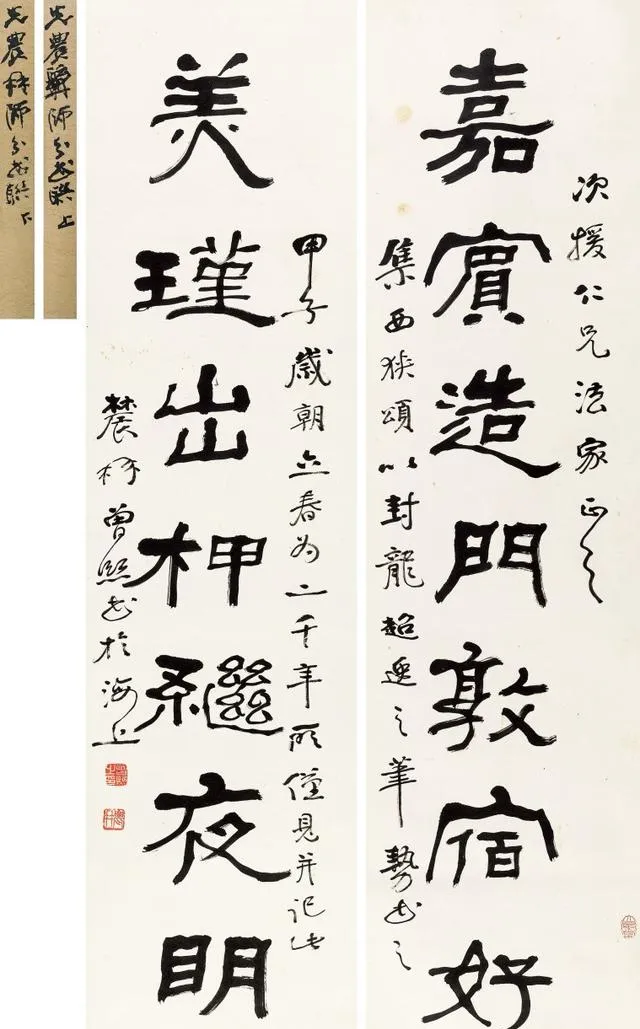 次援仁兄法家正之
嘉賓造門敦宿好
集西狹頌以封龍超逸之筆勢書之
甲子歲朝立春為二千年所僅見并記此
美瑾出柙繼夜眀
農髯曾熙書於海上
先農髯師分書聯上
先農髯師分書聯下